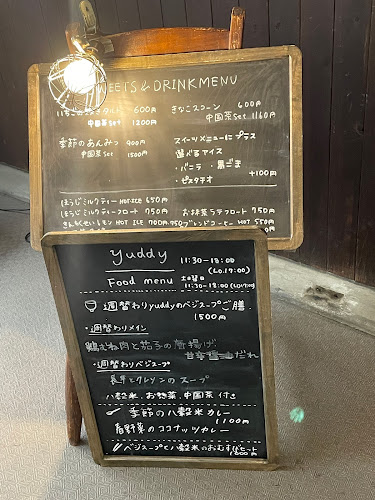 SWEETS & DRINK MENU
いちごのミルクタルト 600円
中国茶set 1200円
季節のあんみつ 900円
中国茶set 1500円
きなこスコーン 600円
中国茶set 1160円
スイーツメニューにプラス
選べるアイス
・バニラ ・黒ごま
・ピスタチオ +100円
ほうじミルクティー HOT・ICE 650円
ほうじミルクティーフロート 750円
お抹茶ラテフロート 750円
HOT ICE 700円
ブレンドコーヒー HOT 550円
yuddy 11:30-18:00
(L.O.17:00)
Food menu 土日
11:30-18:00 (L.O.17:00)
週替わりyuddyのベジスープご膳
1500円
・週替わりメイン
鶏むね肉と茄子の唐揚げ
だれ
・週替わりベジスープ
長芋とクレソンのスープ
八穀米、お惣菜、中国茶付き
季節の八穀米カレー
1100円
春野菜のココナッツカレー
ベジスープと八穀米のおむすびセット